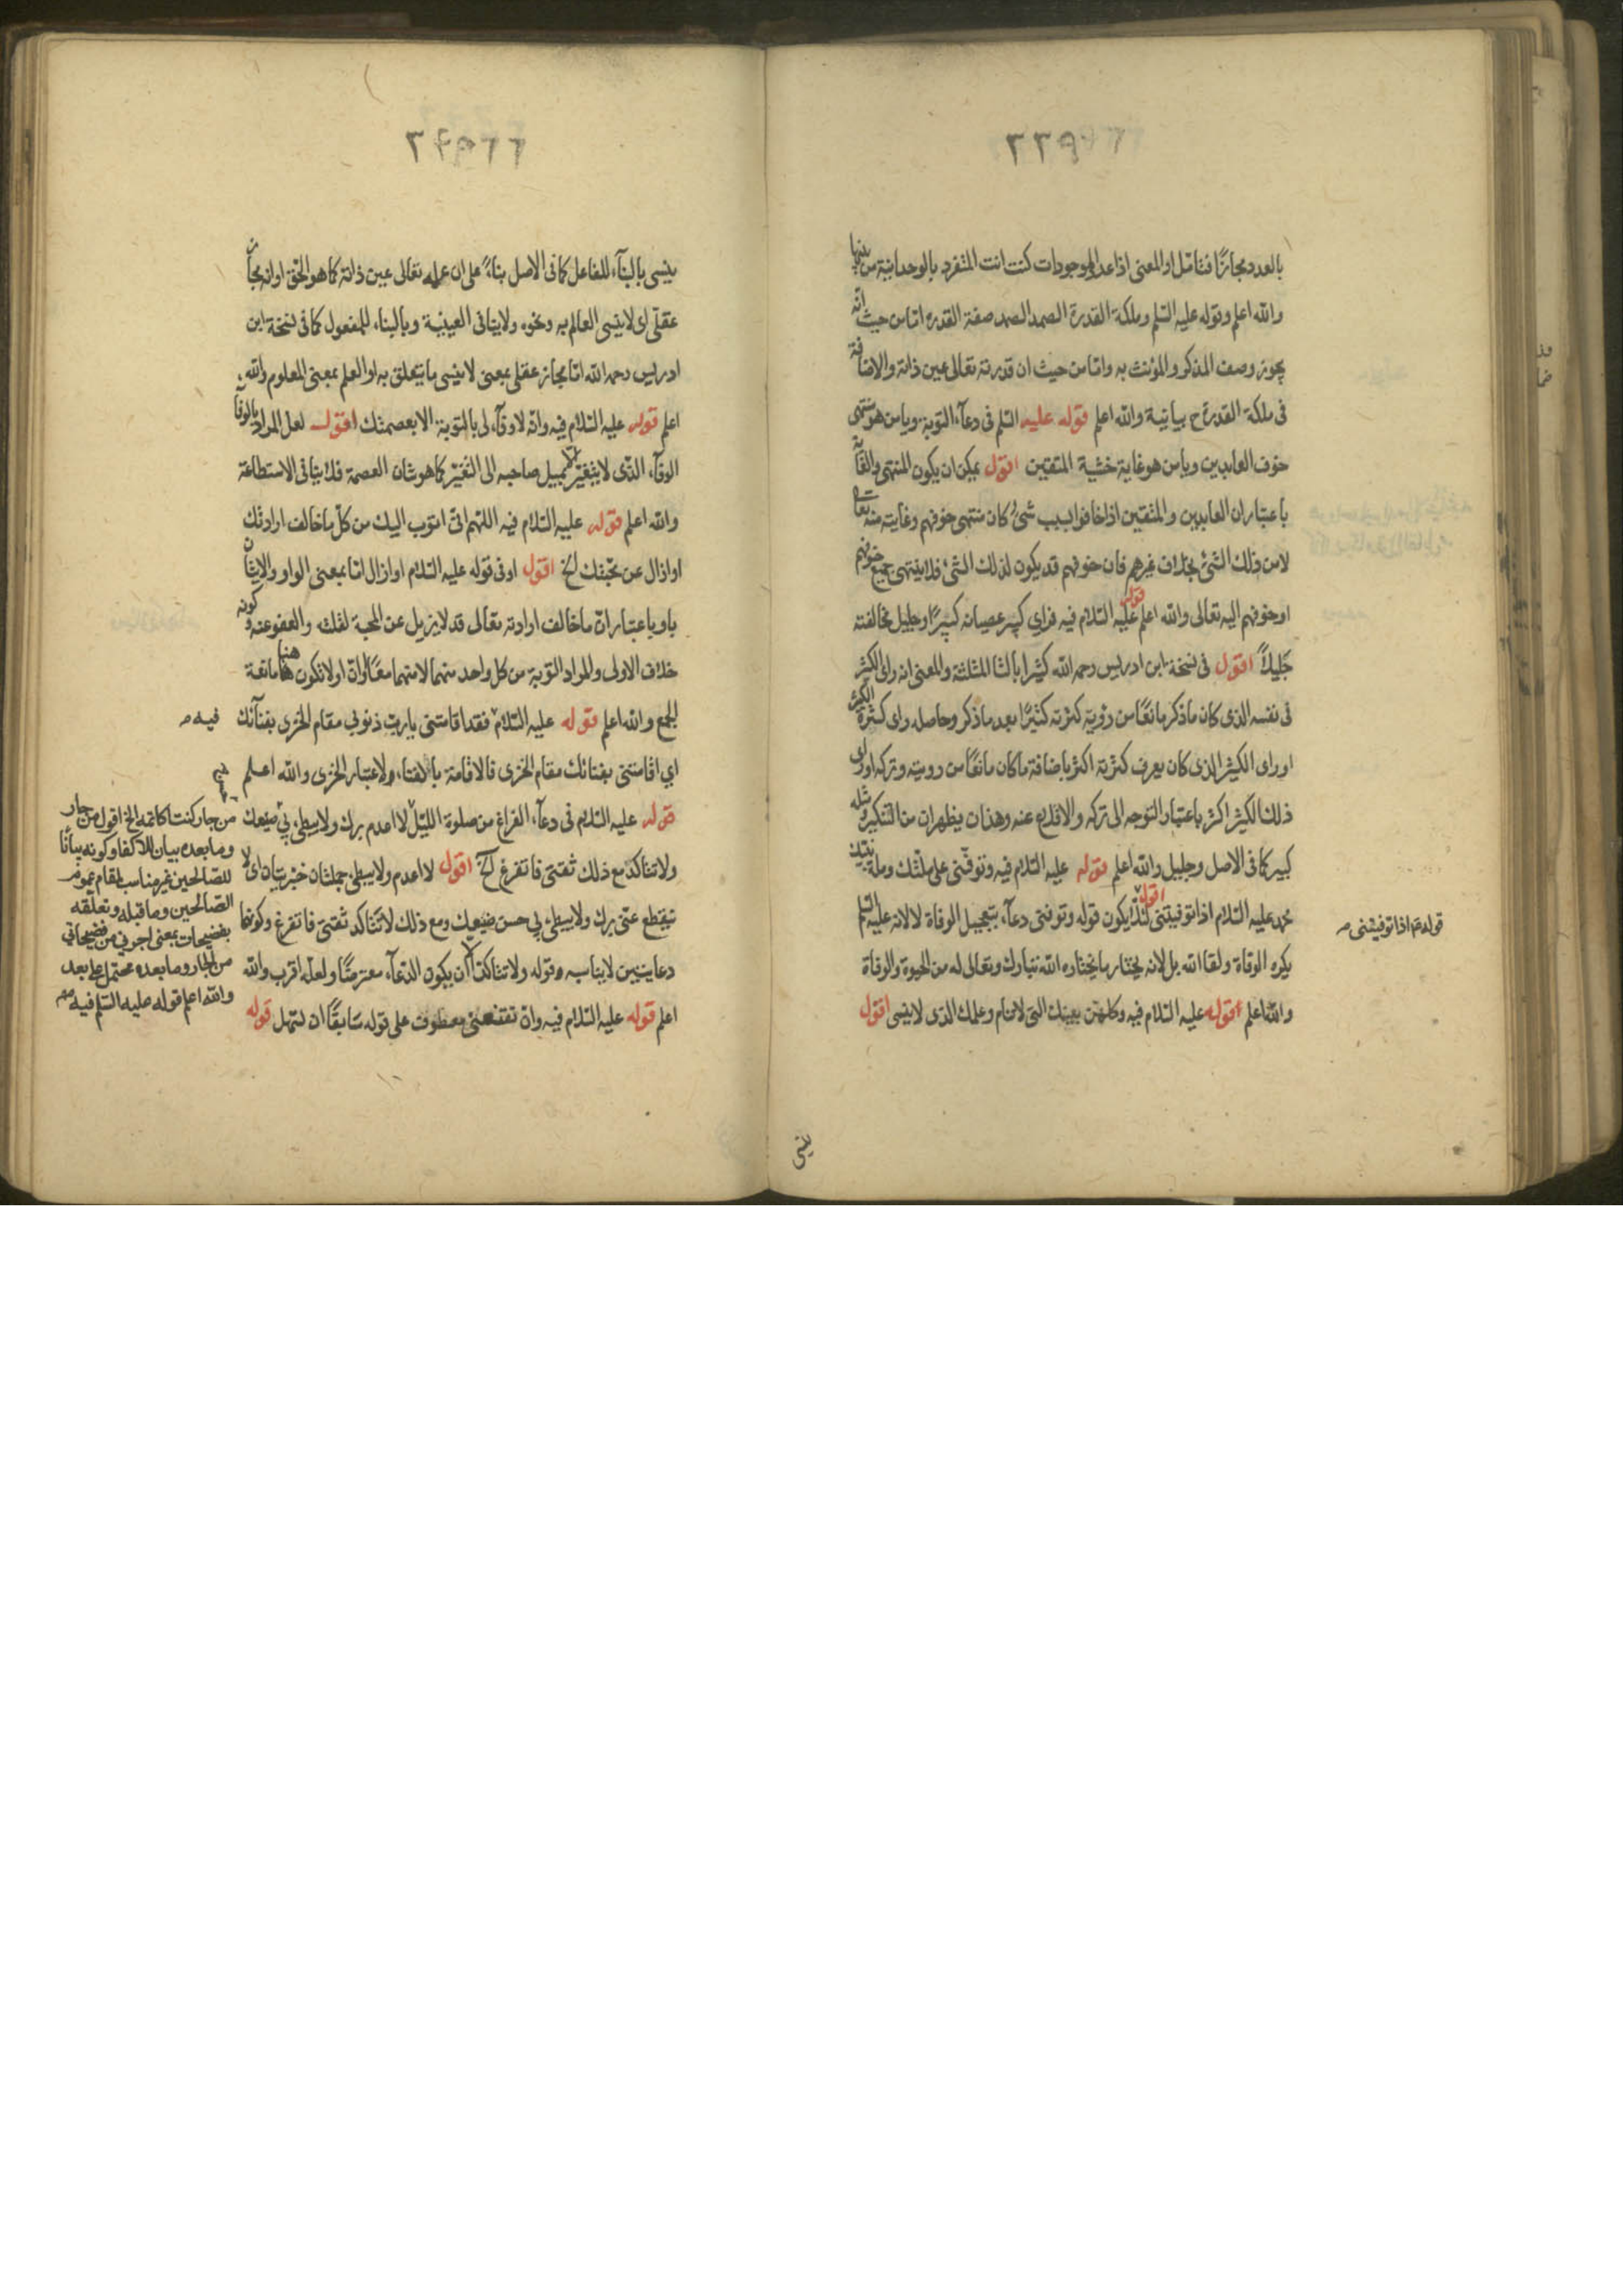 بالعدد مجازًا فتامّل او المعنى اذا عد الموجودات كنت انت المتفرد بالوحدانية من بينها
والله اعلم وقوله عليه السلم وملكة القدرة الصمد الصمد صفة القدرة امّا من حيث انّه
يجوز وصف المذكر والمؤنث به وامّا من حيث ان قدرته تعالى عين ذاته والاضافة
فى ملكة القدرة ح بيانية والله اعلم قوله عليه السلم فى دعآء التوبة ويا من هو منتهى
خوف العابدين ويا من هو غاية خشية المتقين اقول يمكن ان يكون المنتهى والغاية
باعتبار ان العابدين والمتقين اذا خافوا بسبب شئ كان منتهى خوفهم وغايته منه تعالى
لا من ذلك الشئ بخلاف غيرهم فان خوفهم قد يكون لذلك الشئ فلا ينتهى جميع خوفهم
او خوفهم اليه تعالى والله اعلم قوله عليه السلام فيه فراى كبير عصيانه كبيرًا وجليل مخالفته
جَليلاً اقول فى نسخة ابن ادريس رحمه الله كثيرا بالثا المثلثة والمعنى انه راى الكثير
فى نفسه الذى كان ما ذكر مانعًا من رؤية كثرته كثيرًا بعد ما ذكر وحاصله راى كثرة الكثير
او راى الكثير الذى كان يعرف كثرته اكثر باضافة ما كان مانعًا من رويته وتركه او راى
ذلك الكثير اكثر باعتبار التوجه الى تركه والاقلاع عنه وهذان يظهران من التنكير ومثله
كبير كما فى الاصل وجليل والله اعلم قوله عليه السلام فيه وتوفّنى على ملّتك وملة نبيّك
محمد عليه السلام اذا توفيتنى اقول لئلّا يكون قوله وتوفنى دعآء بتعجيل الوفاة لا لانه عليه السلم
يكره الوفاة ولقا الله بل لانه يختار ما يختاره الله تبارك وتعالى له من الحيوة والوفاة
والله اعلم قوله عليه السلام فيه وكلهتن بعينك التى لا تنام وعلمك الذى لا ينسى اقول
قوله اذا توفيتنى
ينسى
ينسى بالبنآء للفاعل كما فى الاصل بناءً على ان علمه تعالى عين ذاته كما هو الحق او انه مجاز
عقلى اى لا ينسى العالم به ونحوه ولا ينافى العينية وبالبناء للمفعول كما فى نسخة ابن
ادريس رحمه الله امّا مجاز عقلى بمعنى لا ينسى ما يتعلق به او العلم بمعنى المعلوم والله
اعلم قوله عليه السّلام فيه وانّه لا وفآء لى بالتوبة الا بعصمتك اقول لعل المراد بالوفآء
الوفآء الذّى لا يتغيّر ولا يميل صاحبه الى التغيّر كما هو شان العصمة فلا ينافى الاستطاعة
والله اعلم قوله عليه السلام فيه اللهم انّى اتوب اليك من كلّ ما خالف ارادتك
او ازال عن محبّتك الخ اقول او فى قوله عليه السّلام او ازال امّا بمعنى الواو والاتيان
باو باعتبار انّ ما خالف ارادته تعالى قد لا يزيل عن المحبة لفلك والعفو عنه وكونه
خلاف الاولى والمراد التوبة من كل واحد منهما لا منهما معًا وانّ او لا تكون هنا مانعة
الجمع والله اعلم قوله عليه السّلام فقد اقامتنى يا ربّ ذنوبى مقام الخزى بفنآئك
فيه
اى اقامتنى بفنائك مقام الخزى فالاقامة بالفناء ولاعتبار الخزى والله اعلم
قوله عليه السّلام فى دعآء الفراغ من صلوة الليل لا اعدم برك ولا يبطئ بى صنيعك
ولا تتاكد مع ذلك ثقتى فاتفرغ الخ اقول لا اعدم ولا يبطئ جملتان خبريتان اى لا
ينقطع عنّى برك ولا يبطئ بى حسن صنيعك ومع ذلك لا تتاكد ثقتى فاتفرغ وكونهما
دعايتين لا يناسبه وقوله ولا تتاكد الّا ان يكون الدّعآء معترضًا ولعلّه اقرب والله
اعلم قوله عليه السّلام فيه وان تقنعنى معطوف على قوله سَابقًا ان تسهل قوله
من جار كنت اكاتمه الخ اقول من جار
وما بعده بيان للاكفا وكونه بيانًا
للصّالحين غير مناسب لمقام عموم
الصّالحين وما قبله وتعلّقه
بفضيحات بمعنى اجرنى من فضيحاتى
من الجار وما بعده محتمل على بعد
والله اعلم قوله عليه السّلم فيه